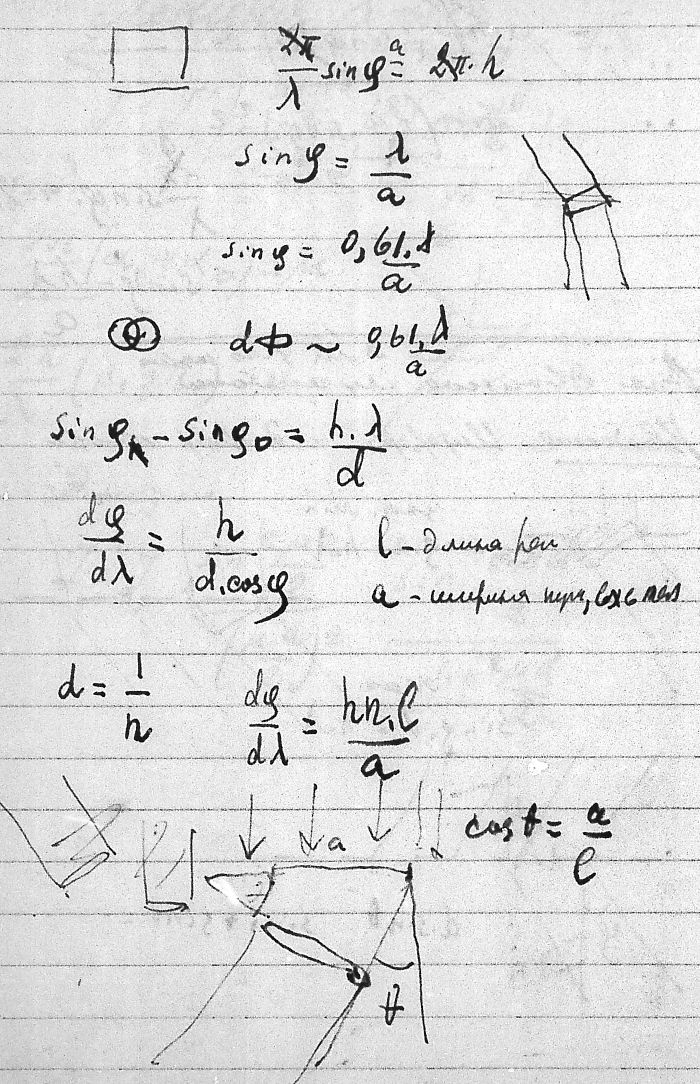 2π/λ sinφ a = 2π·h
sinφ = λ/a
sinφ = 0,61·λ/a
dΦ ~ 0,61·λ/a
sinφh - sinφ0 = h·λ/d
dφ/dλ = h/d·cosφ
l - длина реш
a - ширина
d = 1/n
dφ/dλ = hn·l/a
cos θ = a/l
a
θ